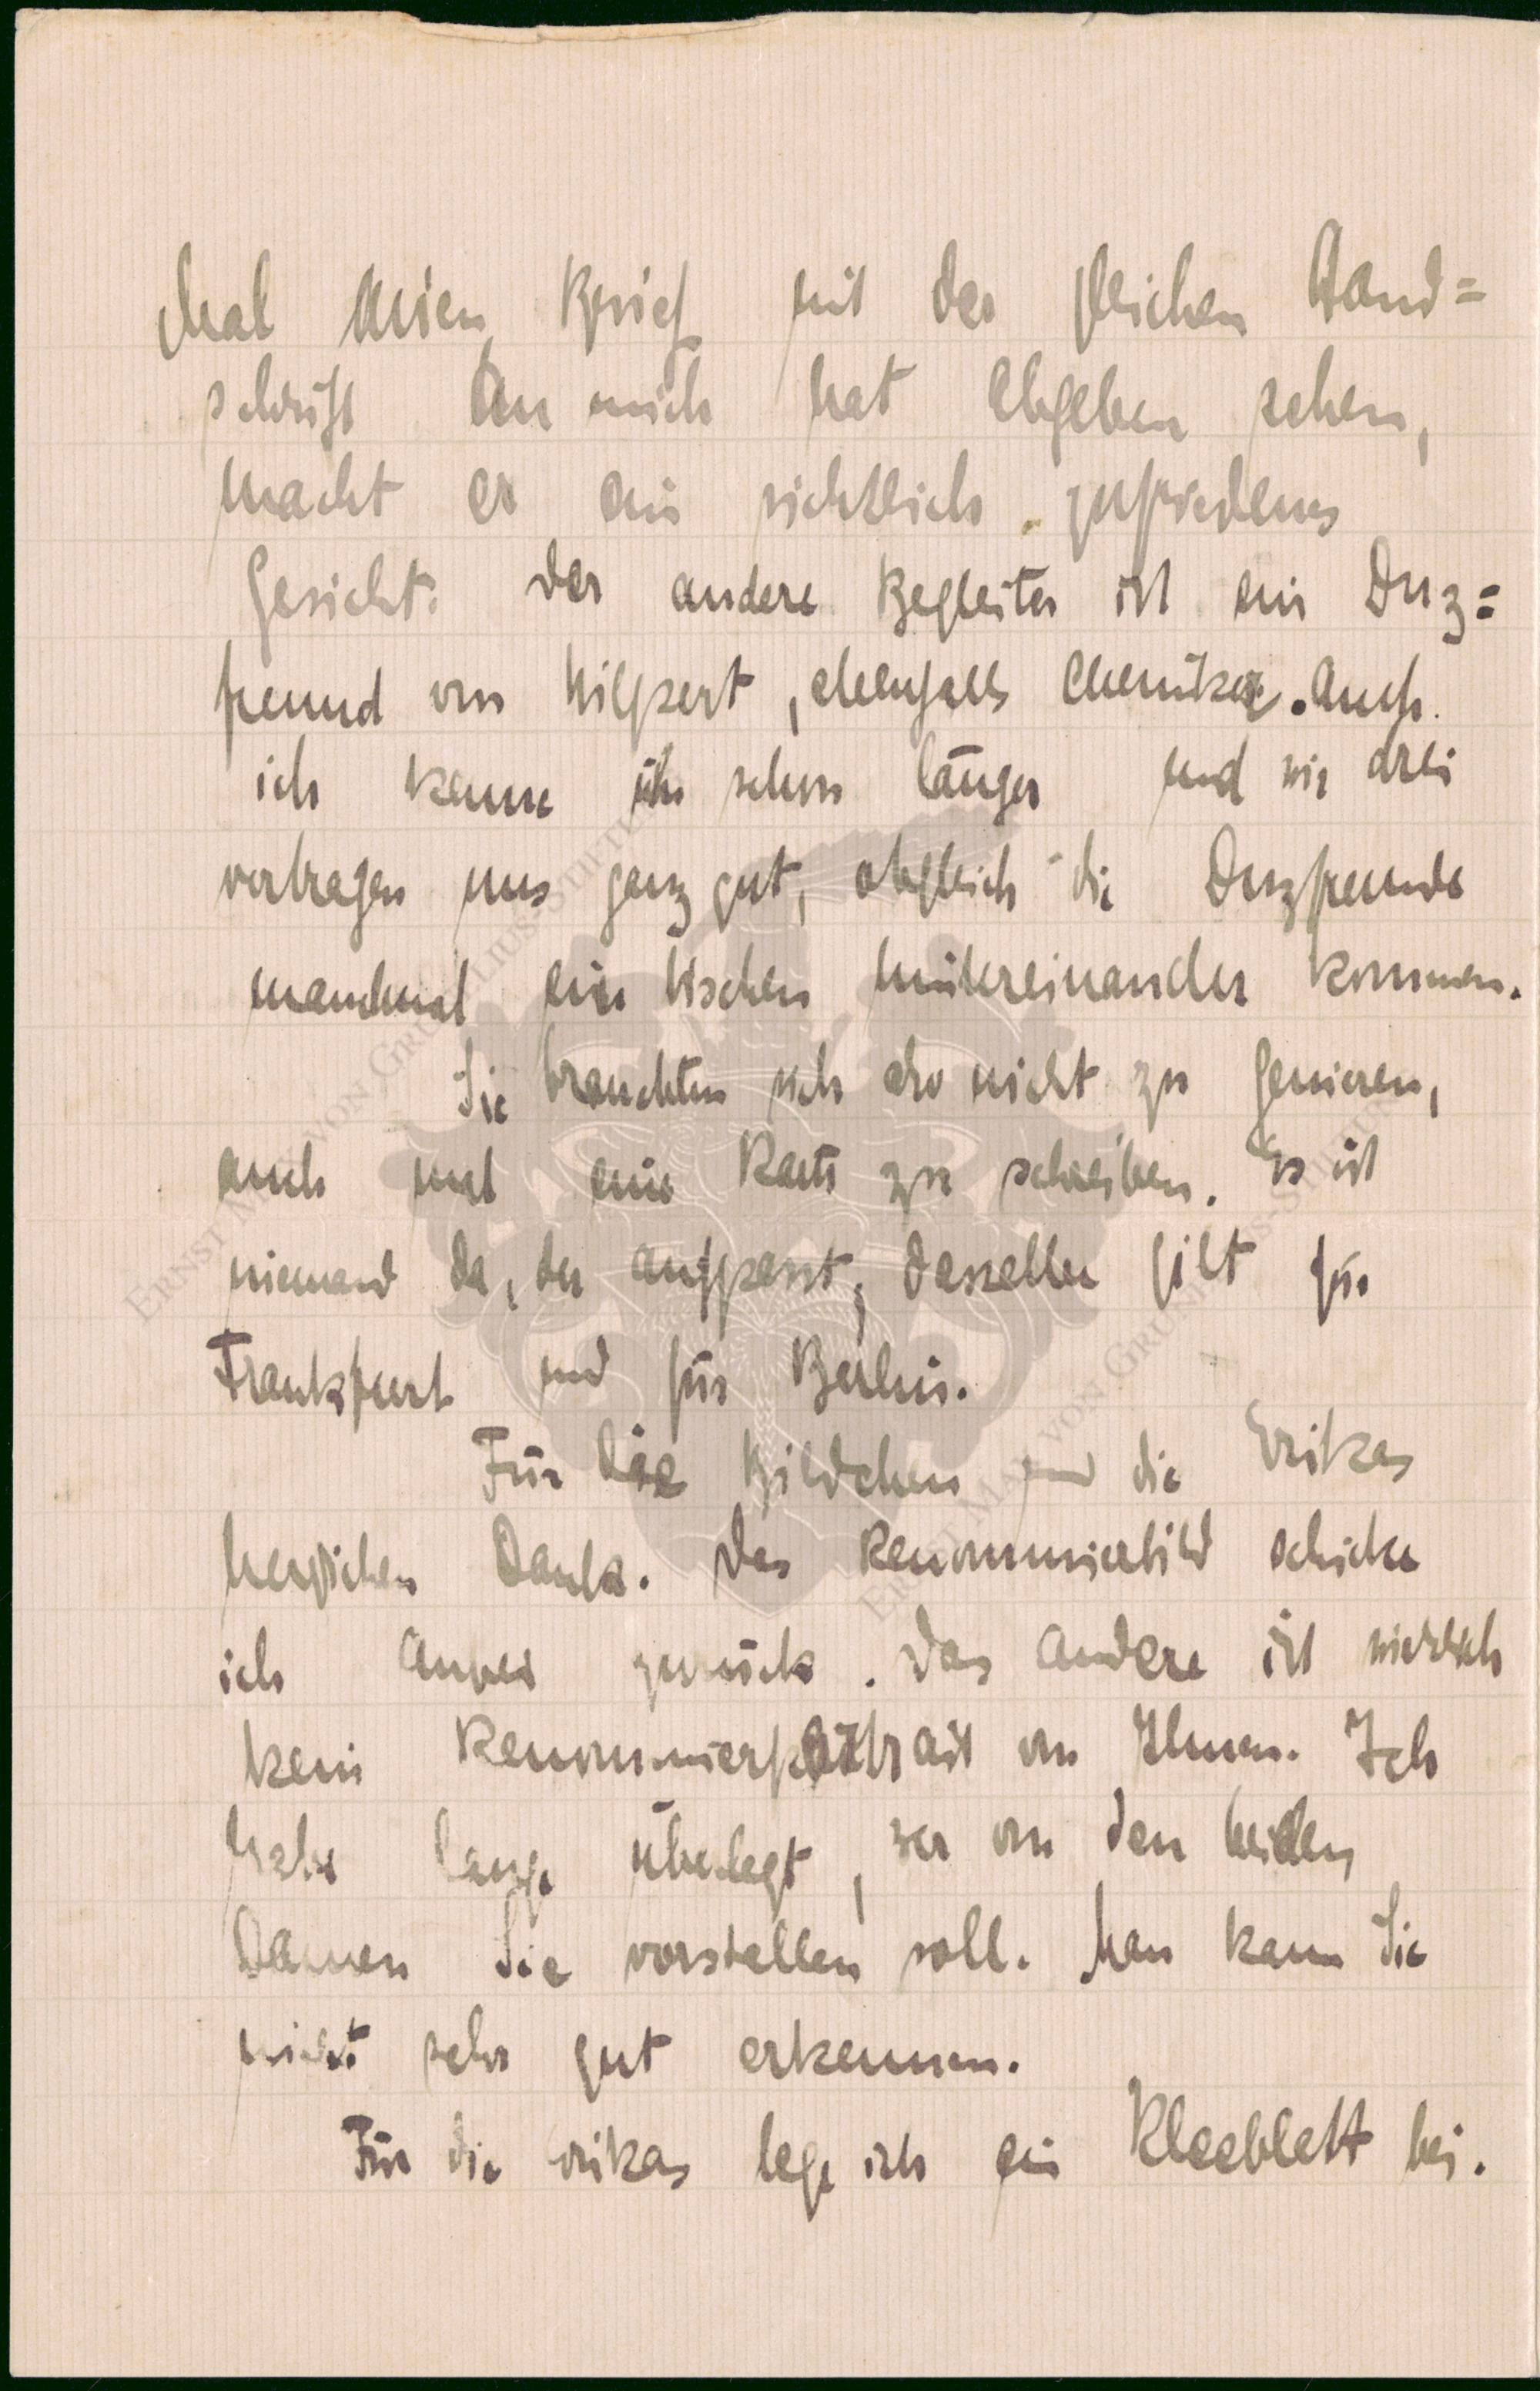 Mal einen Brief mit der gleichen Hand=
schrift an mich hat abgeben sehen,
macht er ein sichtlich zufriedenes
Gesicht. Der andere Begleiter ist ein Duz=
freund von Hilpert, ebenfalls Chemiker. Auch
ich kenne ihn schon länger und wir drei
vertragen uns ganz gut, obgleich die Duzfreunde
manchmal ein bischen hintereinander kommen.
Sie brauchten sich also nicht zu genieren,
auch mal eine Karte zu schreiben. Es ist
niemand da, der aufpasst, dasselbe gilt für
Frankfurt und für Berlin.
Für die Bildchen und die Erikas
herzlichen Dank. Das Renommierbild schicke
ich anbei zurück. Das andere ist wirklich
kein Renommierportrait von Ihnen. Ich
habe lange überlegt, wer von den beiden
Damen Sie vorstellen soll. Man kann Sie
nicht sehr gut erkennen.
Für die Erikas lege ich ein Kleeblatt bei.
ERNST MAX VON GRUNELIUS-STIFTUNG
ERNST MAX VON GRUNELIUS-STIFTUNG